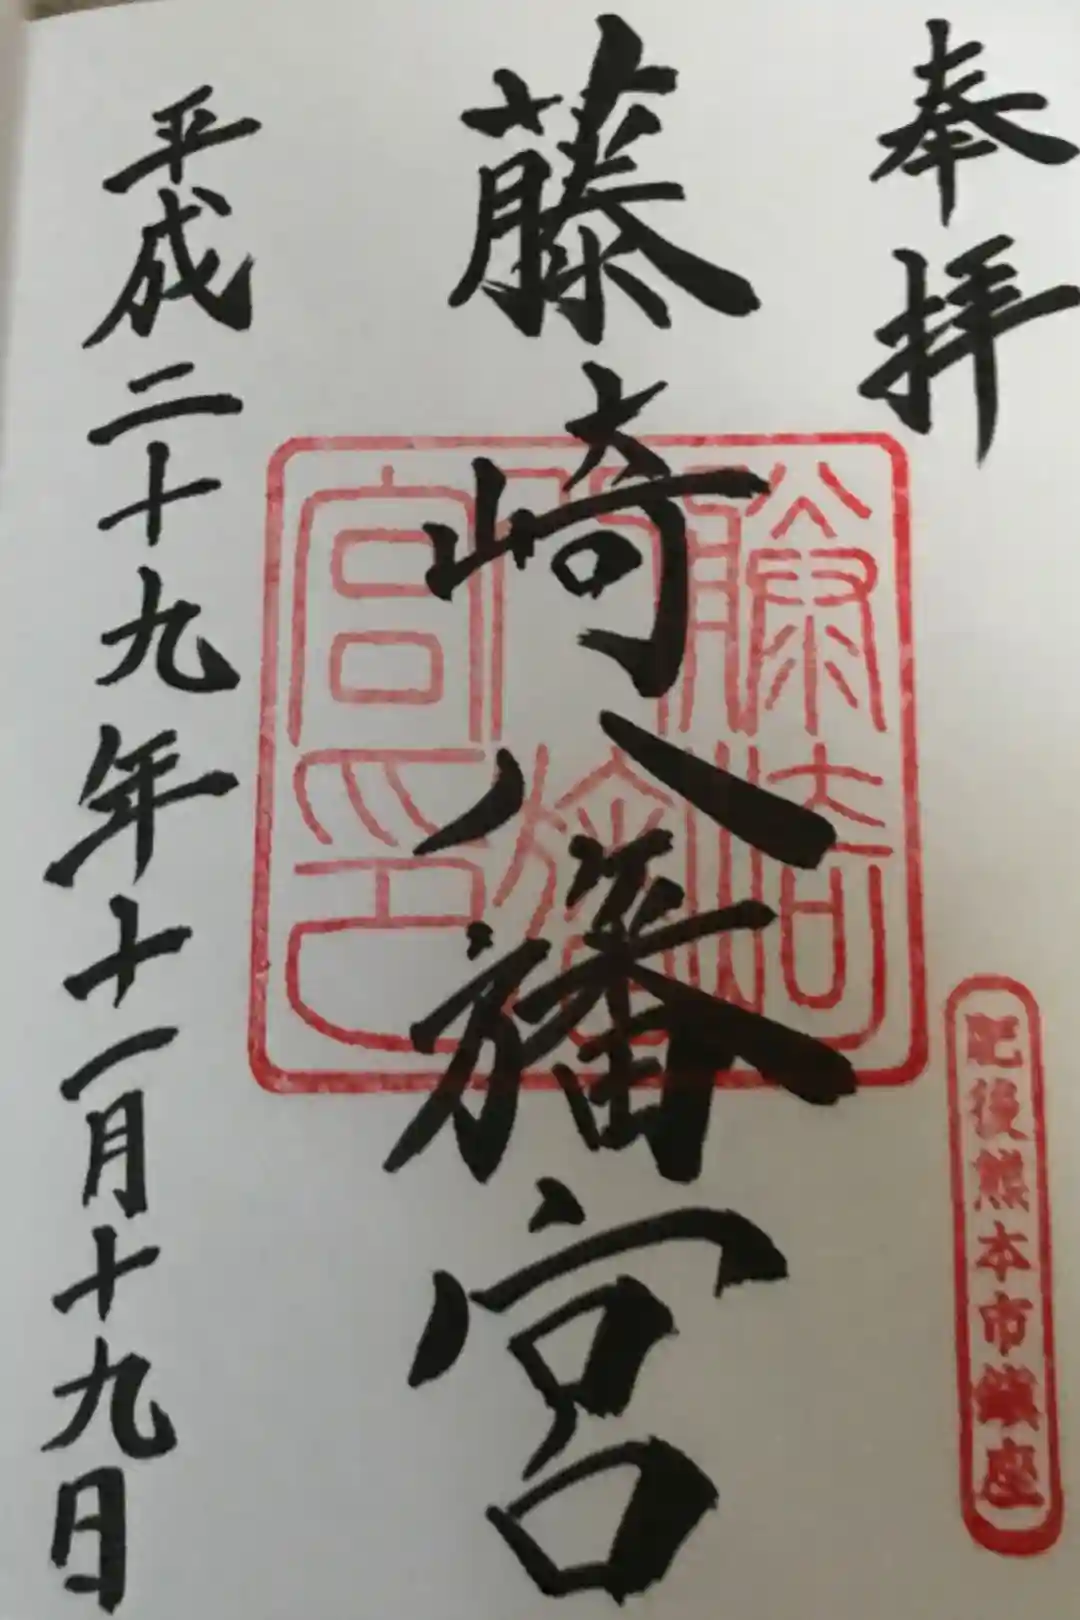 奉拝
肥後熊本市鎮座
藤崎八旛宮
藤崎八旛宮印
平成二十九年十一月十九日